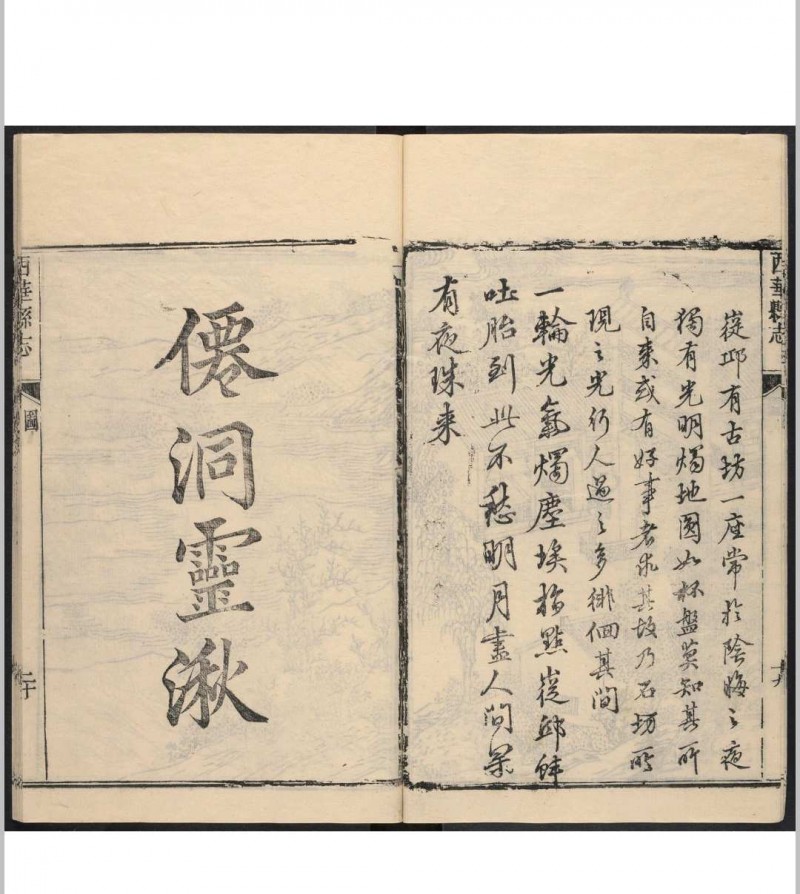 西華縣志
十九
嵸邱有古坊一座常於陰晦之夜
獨有光明燭地圓如杯盤莫知其所
自来或有好事者求其故乃石坊所
現之光行人過之多徘徊其間
一輪光氣燭塵埃指點嵸邱蚌
吐胎到此不愁明月盡人間果
有夜珠来
僊洞靈湫
西華縣志
圖
二十